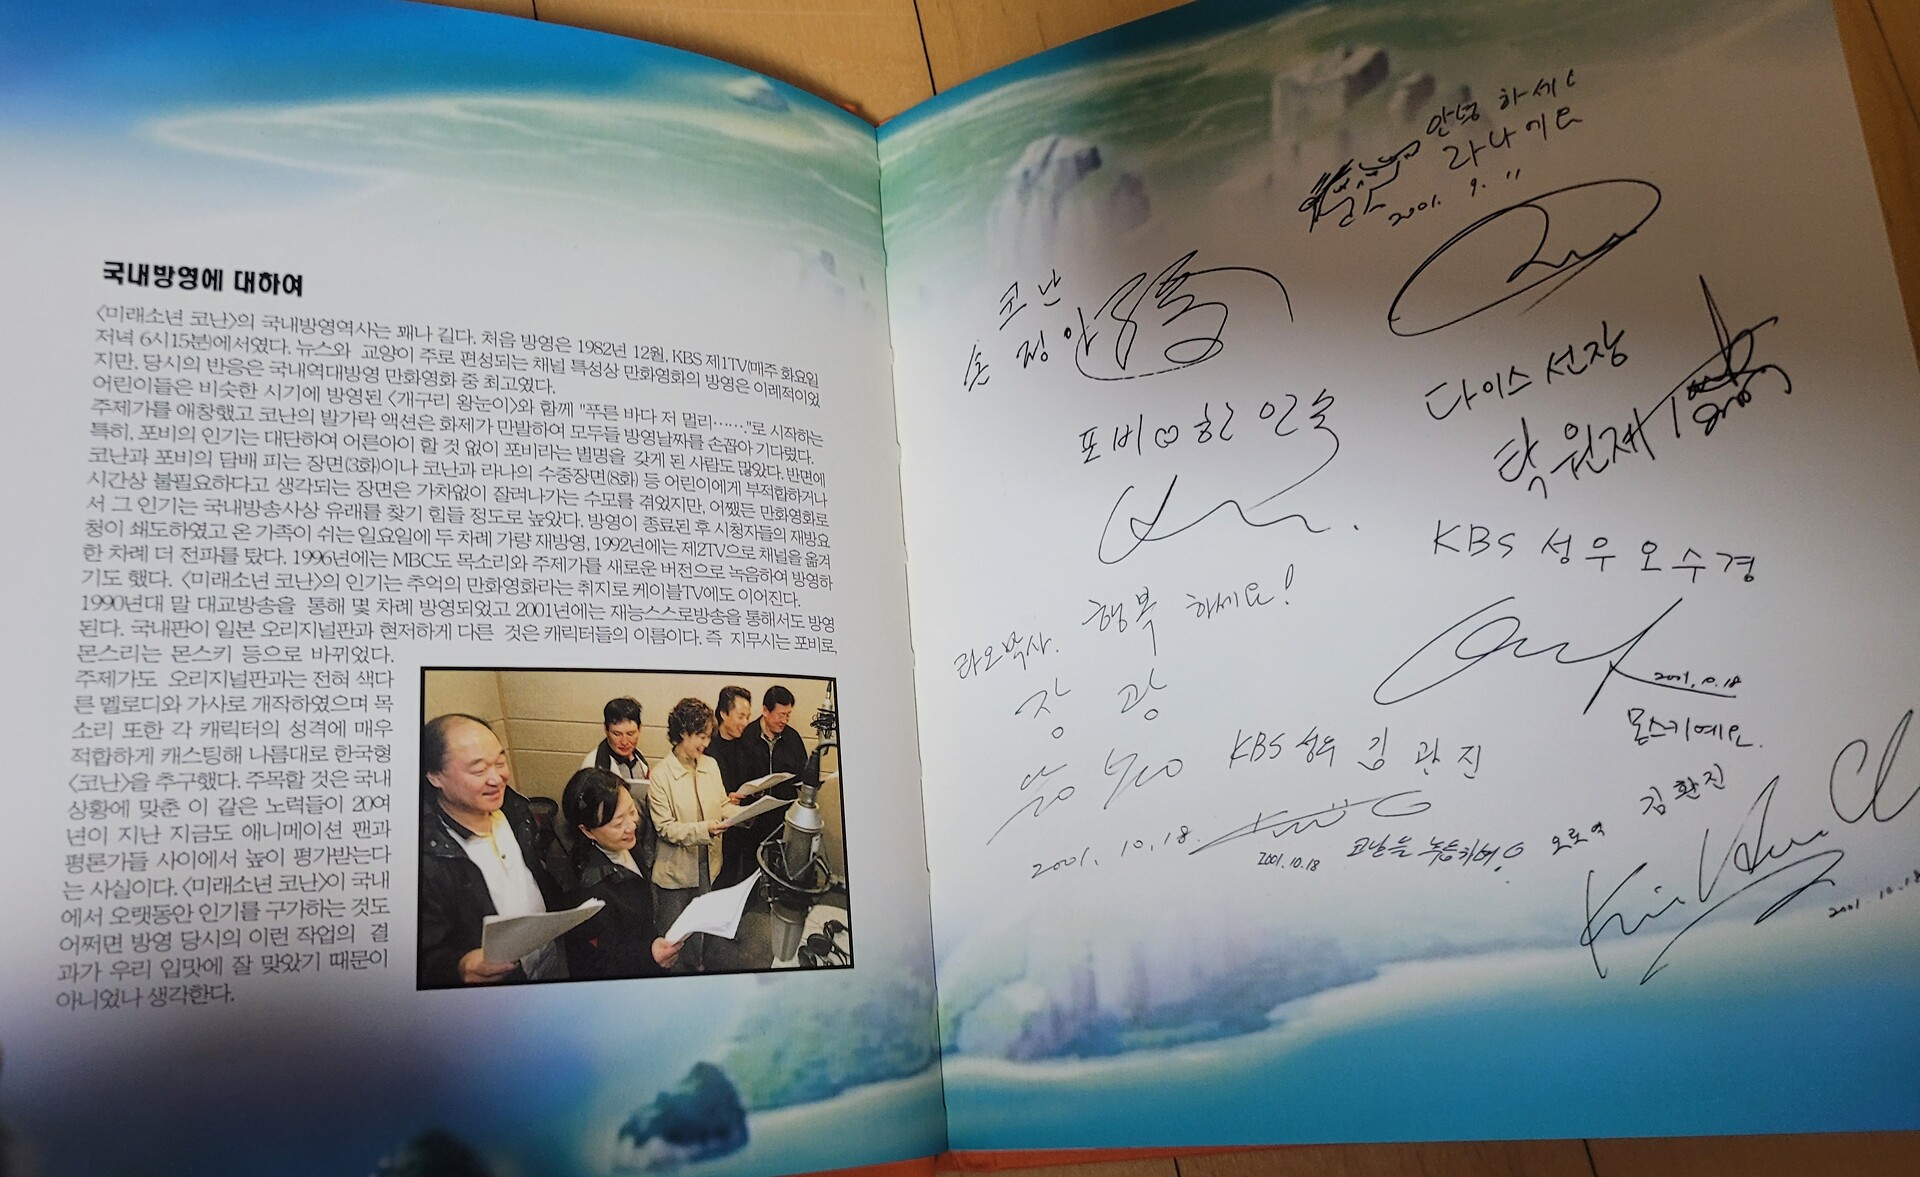 국내방영에 대하여
<미래소년 코난>의 국내방영역사는 꽤나 길다. 처음 방영은 1982년 12월, KBS 제1TV(매주 화요일
저녁 6시15분)에서였다. 뉴스와 교양이 주로 편성되는 채널 특성상 만화영화의 방영은 이례적이었
지만, 당시의 반응은 국내역대방영 만화영화 중 최고였다.
어린이들은 비슷한 시기에 방영된 <개구리 왕눈이>와 함께 "푸른 바다 저 멀리……."로 시작하는
주제가를 애창했고 코난의 발가락 액션은 화제가 만발하여 모두들 방영날짜를 손꼽아 기다렸다.
특히, 포비의 인기는 대단하여 어른아이 할 것 없이 포비라는 별명을 갖게 된 사람도 많았다. 반면에
코난과 포비의 담배 피는 장면(3화)이나 코난과 라나의 수중장면(8화) 등 어린이에게 부적합하거나
시간상 불필요하다고 생각되는 장면은 가차없이 잘려나가는 수모를 겪었지만, 어쨌든 만화영화로
서 그 인기는 국내방송사상 유래를 찾기 힘들 정도로 높았다. 방영이 종료된 후 시청자들의 재방요
청이 쇄도하였고 온 가족이 쉬는 일요일에 두 차례 가량 재방영, 1992년에는 제2TV으로 채널을 옮겨
한 차례 더 전파를 탔다. 1996년에는 MBC도 목소리와 주제가를 새로운 버전으로 녹음하여 방영하
기도 했다. <미래소년 코난>의 인기는 추억의 만화영화라는 취지로 케이블TV에도 이어진다.
1990년대 말 대교방송을 통해 몇 차례 방영되었고 2001년에는 재능스스로방송을 통해서도 방영
된다. 국내판이 일본 오리지널판과 현저하게 다른 것은 캐릭터들의 이름이다. 즉 지무시는 포비로,
몬스리는 몬스키 등으로 바뀌었다.
주제가도 오리지널판과는 전혀 색다
른 멜로디와 가사로 개작하였으며 목
소리 또한 각 캐릭터의 성격에 매우
적합하게 캐스팅해 나름대로 한국형
<코난>을 추구했다. 주목할 것은 국내
상황에 맞춘 이 같은 노력들이 20여
년이 지난 지금도 애니메이션 팬과
평론가들 사이에서 높이 평가받는다
는 사실이다. <미래소년 코난>이 국내
에서 오랫동안 인기를 구가하는 것도
어쩌면 방영 당시의 이런 작업의 결
과가 우리 입맛에 잘 맞았기 때문이
아니었나 생각한다.
안녕 하세
라나에요
2001. 9. 11
코난
손 정아
포비 한 인숙
다이스 선장
탁 원제
KBS 성우 오 수 경
2001. 10. 18
행복 하세요!
라오박사.
장 광
2001. 10. 18.
KBS 성우 김 관 진
2001. 10. 18
몬스키예요.
오로역
김 환진
2001. 10. 18